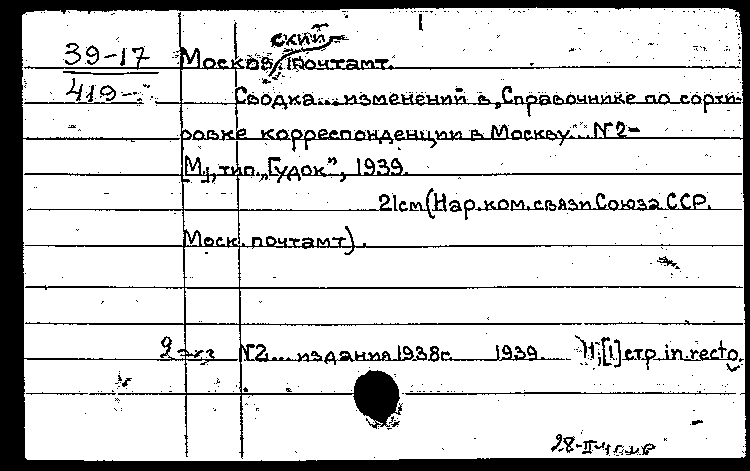 ский
39-17 Москов. почтамт.
419- Сводка... изменений в „Справочнике по сорти-
ровке корреспонденции в Москву... №2-
М., тип. „Гудок”, 1939.
21см (Нар. ком. связи Союза ССР.
Моск. почтамт).
2 экз №2... издания 1938г. 1939. [1] стр. in recto
28-II-